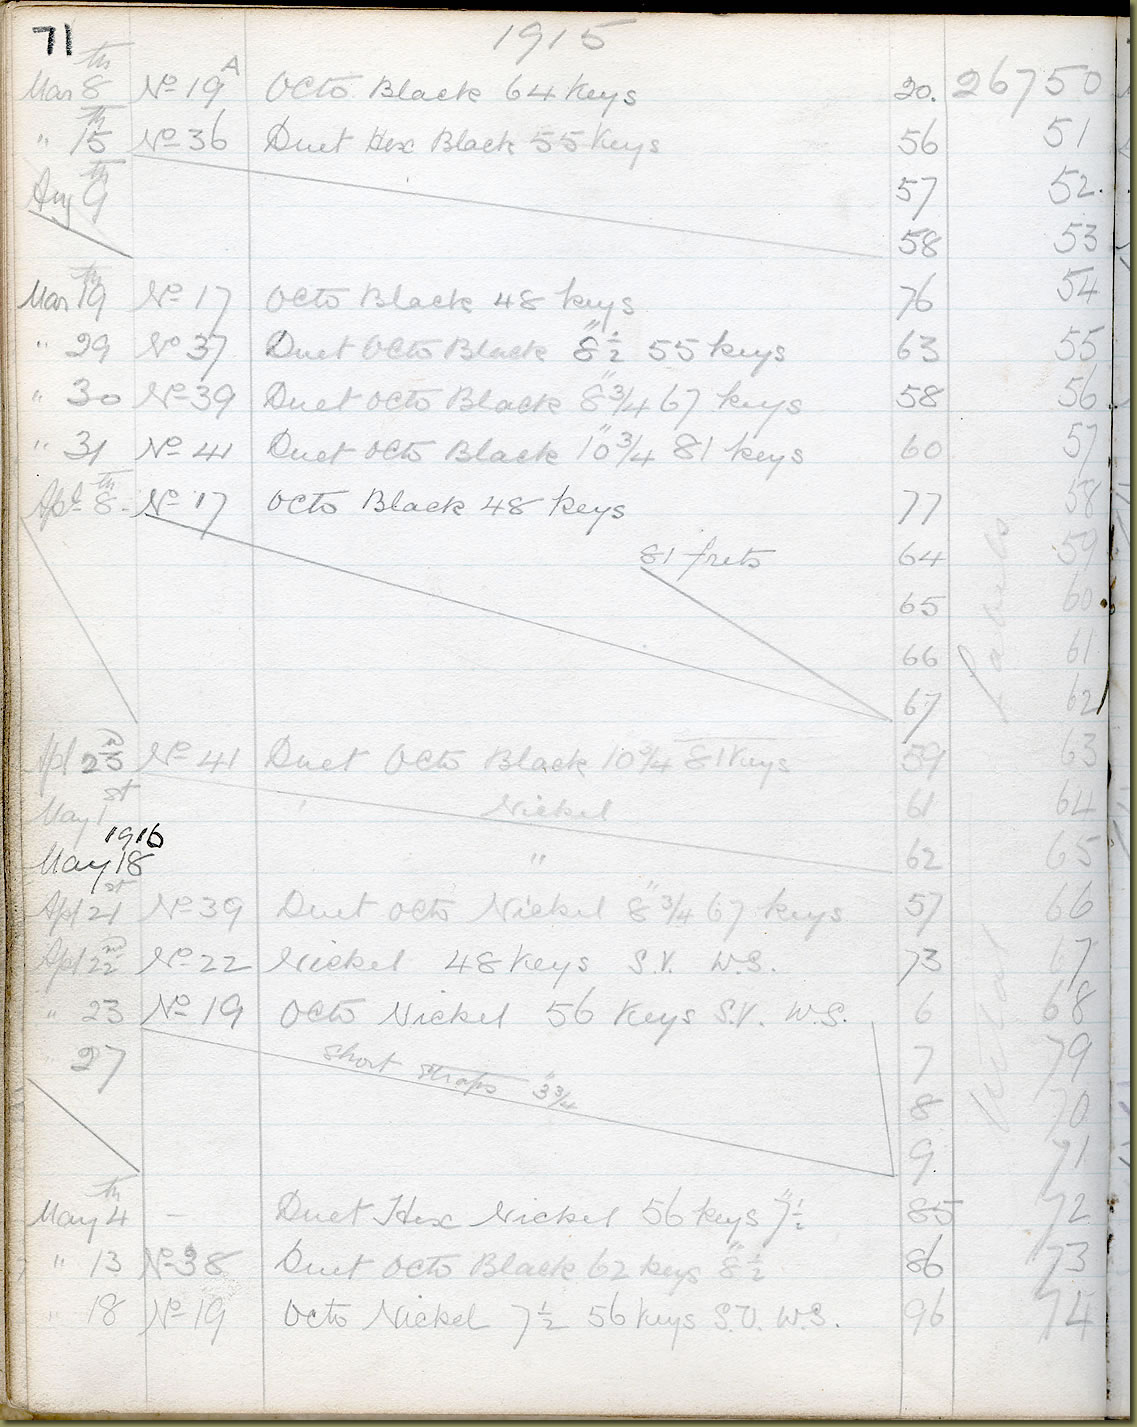 71
1915
Mar 8th No 19A Octo Black 64 Keys 20. 26750
" 15th No 36 Duet Hex Black 55 Keys 56 51
Aug 9th 57 52.
58 53
Mar 19th No 17 Octo Black 48 keys 76 54
" 29 No 37 Duet Octo Black 8½" 55 keys 63 55
" 30 No 39 Duet Octo Black 8¾" 67 keys 58 56
" 31 No 41 Duet Octo Black 10¾" 81 keys 60 57
Apl 8th No 17 Octo Black 48 keys 77 58
81 frets 64 59
65 60
66 61
67 62
Apl No 41 Duet Octo Black 10¾ 81 Keys 59 63
May 1st Nickel 61 64
1916
May 18 " 62 65
Apl 21st No 39 Duet Octo Nickel 8¾" 67 keys 57 66
Apl 22nd No 22 Nickel 48 Keys S.V. W.S. 73 67
" 23 No 19 Octo Nickel 56 Keys S.V. W.S. 6 68
" 27 7 79
short straps 3¾"
8 70
9. 71
May 4th - Duet Hex Nickel 56 keys 7½" 85 72
" 13 No 38 Duet Octo Black 62 keys 8½" 86 73
" 18 No 19 Octo Nickel 7½ 56 Keys S.V. W.S. 96 74
Labels